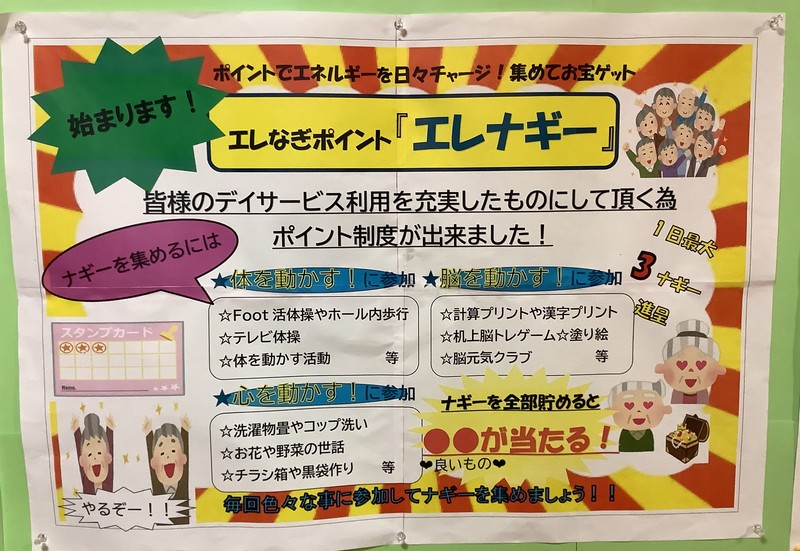 始まります！
ポイントでエネルギーを日々チャージ！集めてお宝ゲット
エレなぎポイント『エレナギー』
皆様のデイサービス利用を充実したものにして頂く為
ポイント制度が出来ました！
ナギーを集めるには
1日最大
3ナギー
進呈
★体を動かす！に参加
☆Foot活体操やホール内歩行
☆テレビ体操
☆体を動かす活動 等
★脳を動かす！に参加
☆計算プリントや漢字プリント
☆机上脳トレゲーム☆塗り絵
☆脳元気クラブ 等
スタンプカード
Name.
★心を動かす！に参加
☆洗濯物畳やコップ洗い
☆お花や野菜の世話
☆チラシ箱や黒袋作り 等
ナギーを全部貯めると
●●が当たる！
❤良いもの❤
やるぞー！！
毎回色々な事に参加してナギーを集めましょう！！